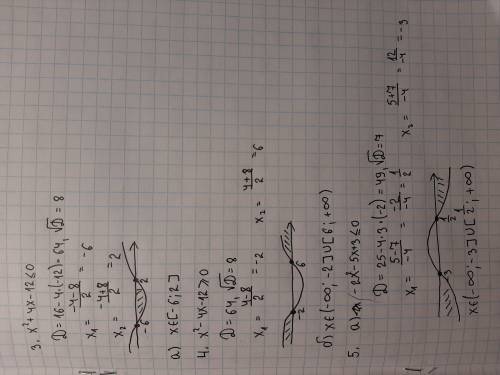 3. x²+4x-12≤0
D=16-4·(-12)=64, √D=8
x₁ = (-4-8)/2 = -6
x₂ = (-4+8)/2 = 2
-6 2
а) x∈[-6;2]
4. x²-4x-12≥0
D=64, √D=8
x₁ = (4-8)/2 = -2 x₂ = (4+8)/2 = 6
-2 6
б) x∈(-∞;-2]∪[6;+∞)
5. а) -2x²-5x+3≤0
D=25-4·3·(-2)=49, √D=7
x₁ = (5-7)/-4 = -2/-4 = 1/2 x₂ = (5+7)/-4 = 12/-4 = -3
-3 1/2
x∈(-∞;-3]∪[1/2;+∞)